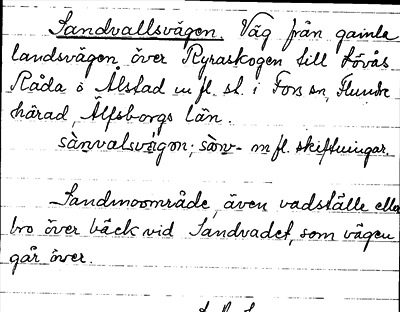 Sandvallsvägen. Väg från gamla
landsvägen över Ryraskogen till Lövås
Råda o Alstad m fl. st. i Fors sn, Flundre
härad, Älfsborgs län.
sànvalsvägen; sànv- m fl. skiftningar.
Sandmoområde, även vadställe eller
bro över bäck vid Sandvadet, som vägen
går över.